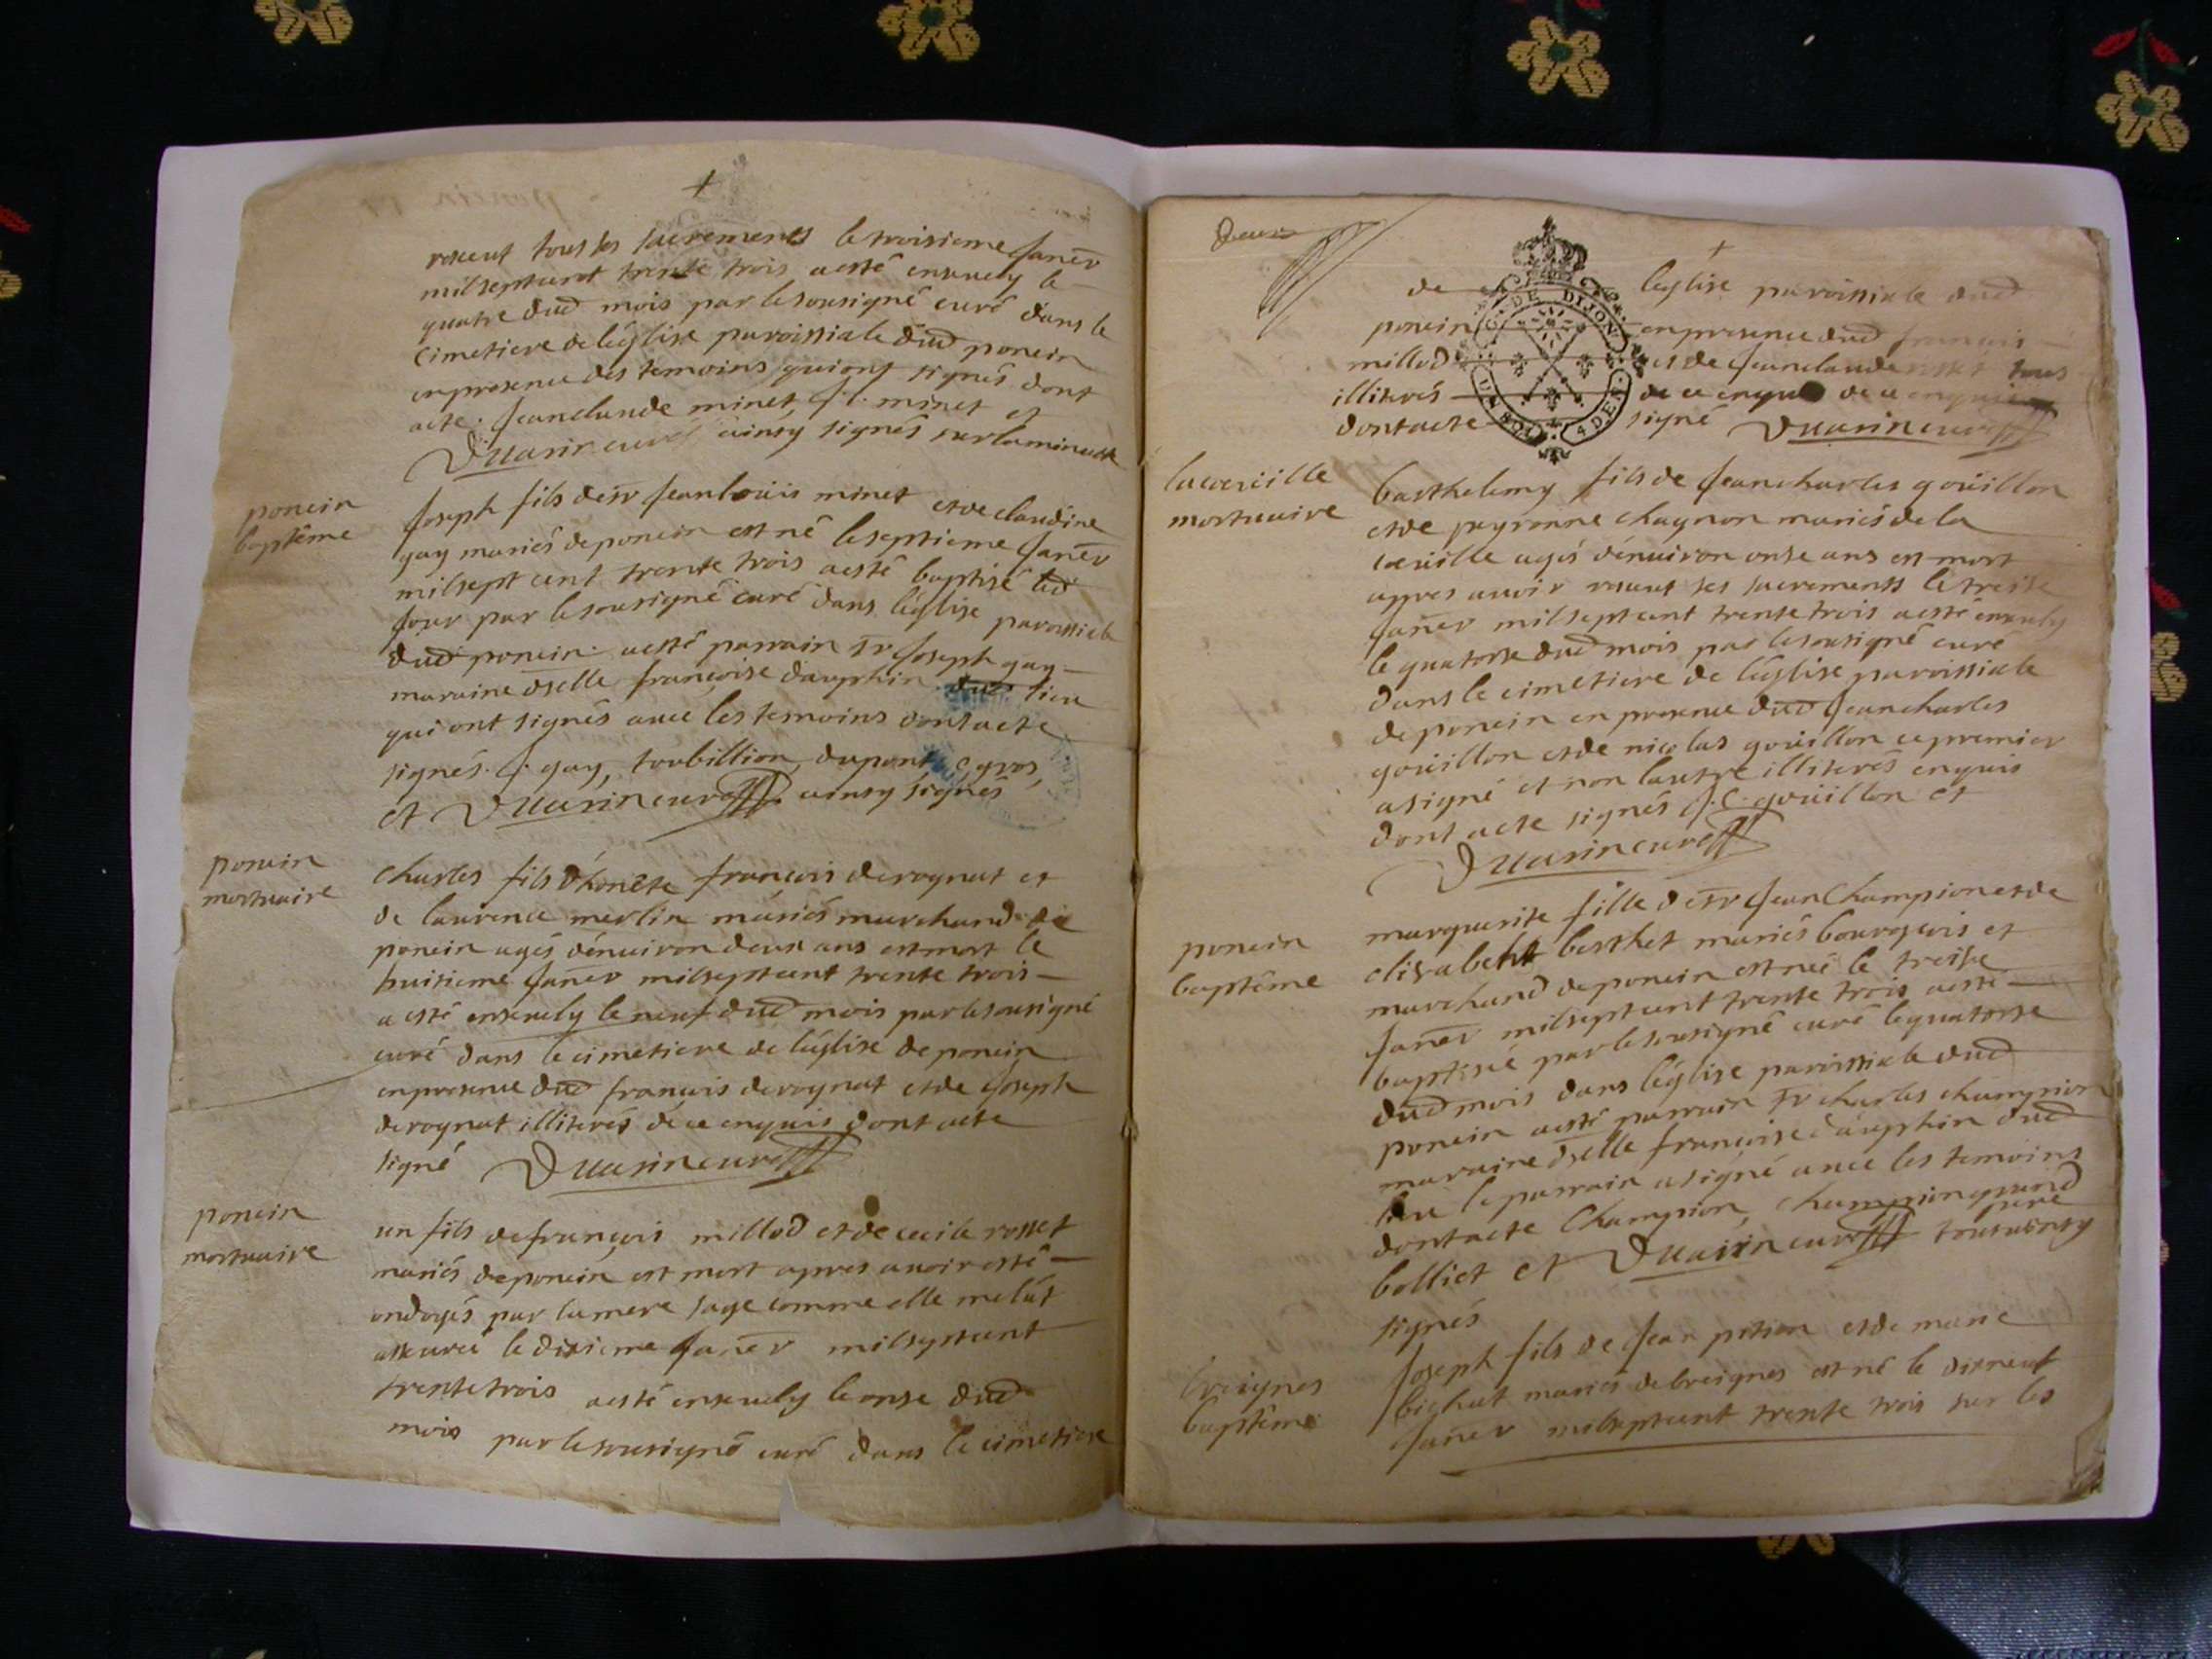 receut tous ses sacrements le troisieme Janer
milseptcent trente trois aesté enseuely le
quatre dud mois par lesousigné curé dans le
cimetiere de léglise paroissiale dud poncin
enpresence des temoins quiont signés dont
acte. Jeanclaude minet, J. l. minet et
Duuarin curé ainsy signés surlaminutte
poncin
baptême
Joseph fils desr Jeanloüis minet etde claudine
gay mariés deponcin est né leseptieme Janer
milsept cent trente trois aesté baptisé led
Jour par lesousigné curé dans léglise paroissiale
dud poncin. aesté parrain sr Joseph gay
maraine dselle françoise dauphin dud lieu
qui ont signés auec les temoins dontacte
signés. J. gay, toubillion, dupont, c gros,
et Duuarin curé ainsy signés
poncin
mortuaire
Charles fils d'honete françois derognat et
de laurence merlin mariés marchand de
poncin agés dénuiron deux ans estmort le
huitieme Janer milseptcent trente trois
aesté enseuely le neuf dud mois parlesousigné
curé dans lecimetiere de léglise deponcin
enpresence dud françois derognat etde Joseph
derognat illiterés dece enquis dont acte
signé Duuarin curé
poncin
mortuaire
un fils defrançois millod etde cecile rosset
mariés deponcin est mort apres auoir esté
ondoyés par lamere sage comme elle melát
asseuré ledixieme Janer milseptcent
trentetrois aesté enseuely leonse dud
mois parlesousigné curé dans le cimetiere
Deux
de léglise paroissiale dud
poncin enpresence dud francois
millod et de Jeanclaude rosset tous
illiterés de ce enquis de ce enquis
dontacte signé Duuarin curé
G. DE DIJON
4 DEN.
lacueuille
mortuaire
barthelemy fils de Jeancharles goüillon
etde peyronne chagnon mariés de la
cueuille agés dénuiron onse ans est mort
apres auoir receut ses sacrements le treise
Janer milseptcent trentetrois aesté enseuely
le quatorse dud mois par lesousigné curé
dans le cimetiere de léglise paroissiale
deponcin en presence dud Jeancharles
goüillon etde nicolas goüillon cepremier
asigné et non lautre illiterés enquis
dont acte signés J. C. goüillon et
Duuarin curé
poncin
baptême
marguerite fille desr Jean Champion etde
elisabeht berthet mariés bourgeois et
marchand deponcin estnée le treise
Janer milseptcent trente trois aesté
baptisée parlesousigné curé lequatorse
dud mois dans léglise paroissiale dud
poncin aesté parrain sr charles champion
maraine dselle françoise dauphin dud
lieu le parrain asigné auec les temoins
dontacte Champion, championgrand
pere
bolliet et Duuarin curé tousainsy
signés
breignes
baptême
Joseph fils de Jean pition etde marie
bichat mariés debreignes est né le dixneuf
Janer milseptcent trente trois sur les